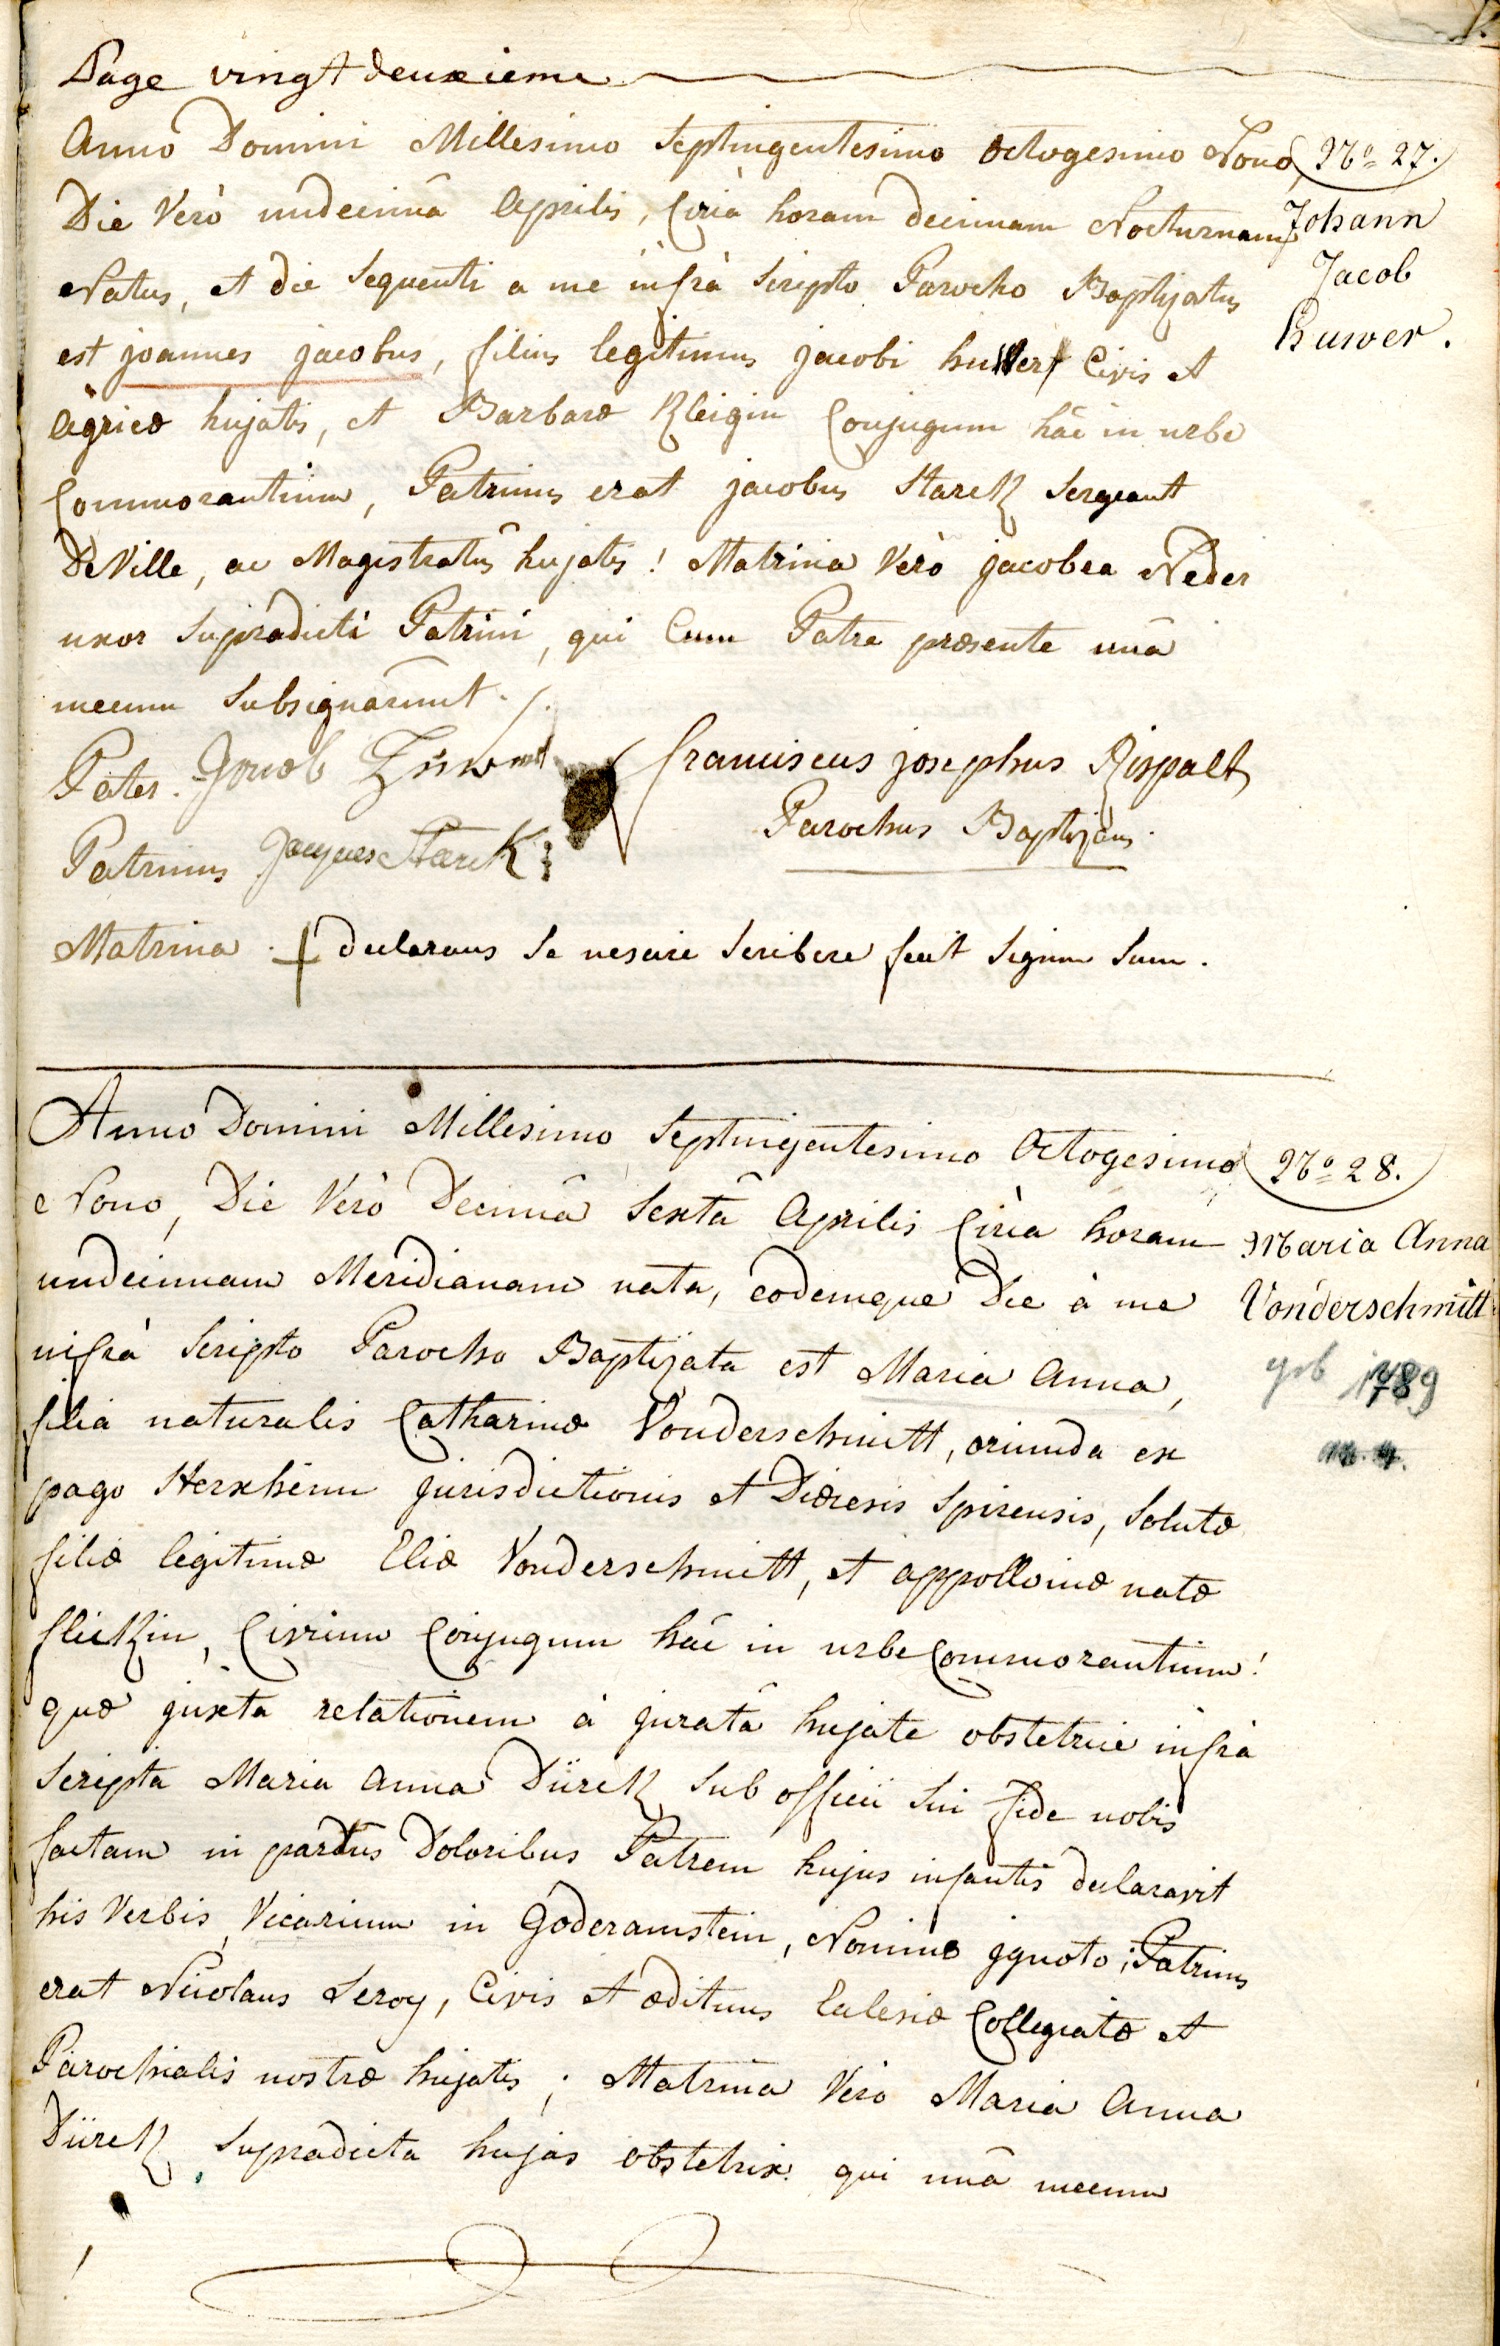 Page vingt deuxieme
Anno Domini Millesimo Septingentesimo Octogesimo Nono, Nº 27.
Die Verò undecimâ Aprilis, Circà horam decimam Nocturnam Johann
Natus, et die Sequenti a me infrà Scripto Parocho Baptizatus Jacob
est joannes jacobus, filius legitimus jacobi huver Civis et Huwer.
Agricæ hujatis, et Barbaræ Kleigin Conjugum hâc in urbe
Commorantium, Patrinus erat jacobus Starck Sergeant
DeVille, ac Magistratûs hujatis! Matrina Verò jacobea Neder
uxor Supradicti Patrini, qui Cum Patre præsente unâ
mecum Subsignârunt ./.
Pater. Jacob franciscus josephus Rispalt
Parochus Baptizans.
Patrinus Jacques Starck
Matrina . + declarans Se nescire Scribere fecit Signum Suum.
Anno Domini Millesimo Septingentesimo Octogesimo Nº 28.
Nono, Die Verò Decimâ Sextâ Aprilis Circà horam Maria Anna
undecimam Meridianam nata, eodemque Die à me Vonderschmitt
infrà Scripto Parocho Baptizata est Maria Anna, geb 1789
filia naturalis Catharinæ Vonderschmitt, oriunda ex
pago Herxheim jurisdictionis et Diœcesis Spirensis, Solutæ
filiæ legitimæ Eliæ Vonderschmitt, et appolloniæ natæ
flickin, Civium Conjugum hâc in urbe Commorantium!
quæ juxta relationem à juratâ hujate obstetrice infrà
Scripta Maria Anna Dürck Sub officii Sui fide nobis
factam in partus Doloribus Patrem hujus infantis declaravit
his Verbis, Vicarium in Goderamstein, Nomine jgnoto; Patrinus
erat Nicolaus Leroy, Civis et ædituus Ecclesiæ Collegiatæ et
Parochialis nostræ hujatis; Matrina Verò Maria Anna
Dürck Supradicta hujas obstetrix qui unâ mecum